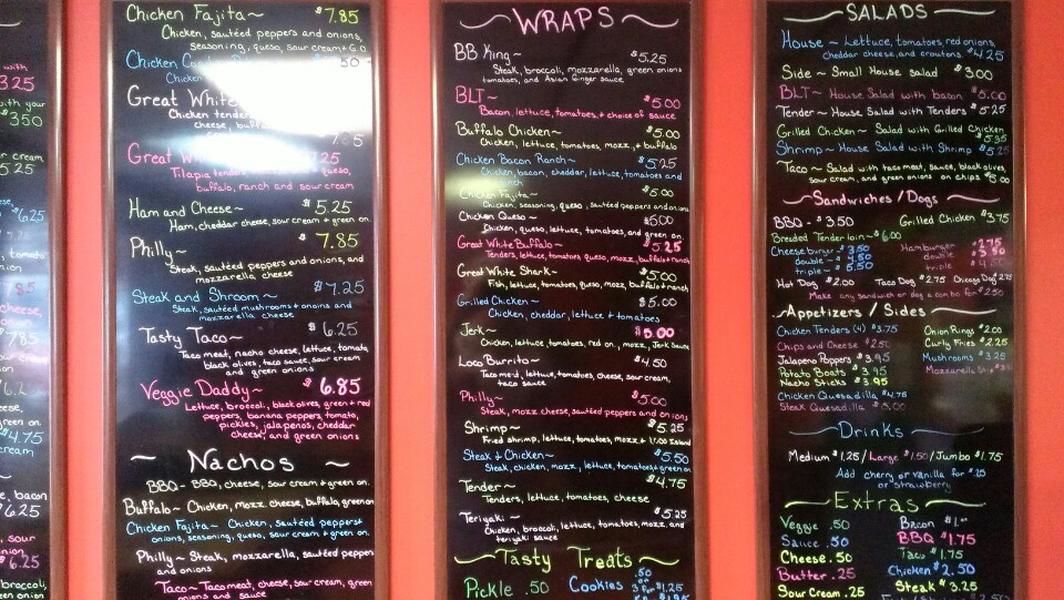 with
3.25
with your
$350
r cream
5.25
$6.25
nion
785
cheese,
785
eese,
een on.
4.75
cream
e, bacon
6.25
, sour
nion
$6.25
broccoli,
een on.
Chicken Fajita~ $7.85
Chicken, sautéed peppers and onions,
seasoning, queso, sour cream + G.O
Chicken
50
Chicken
Great White
Chicken tender
cheese, buff
7.85
Great Wh 7.25
Tilapia tenders queso,
buffalo, ranch and sour cream
Ham and Cheese~ $5.25
Ham, cheddar cheese, sour cream + green on.
Philly~ $7.85
Steak, sautéed peppers and onions, and
mozzarella cheese
Steak and Shroom~ $7.25
Steak, sautéed mushrooms + onions and
mozzarella cheese
Tasty Taco~ $6.25
Taco meat, nacho cheese, lettuce, tomato,
black olives, taco sauce, sour cream
and green onions
Veggie Daddy~ $6.85
Lettuce, broccoli, black olives, green + red
peppers, banana peppers, tomato,
pickles, jalapenos, cheddar
cheese, and green onions
~ Nachos ~
BBQ- BBQ, cheese, sour cream + green on.
Buffalo~ Chicken, mozz cheese, buffalo, green on
Chicken Fajita~ Chicken, sautéed peppers +
onions, seasoning, queso, sour cream + green on.
Philly~ Steak, mozzarella, sautéed peppers
and onions
Taco~ Taco meat, cheese, sour cream, green
onions and sauce
~WRAPS~
BB King~ $5.25
Steak, broccoli, mozzarella, green onions
tomatoes, and Asian Ginger sauce
BLT~ $5.00
Bacon, lettuce, tomatoes, + choice of sauce
Buffalo Chicken~ $5.00
Chicken, lettuce, tomatoes, mozz, + buffalo
Chicken Bacon Ranch~ $5.25
Chicken, bacon, cheddar, lettuce, tomatoes and
ranch
Chicken Fajita~ $5.00
Chicken, seasoning, queso, sautéed peppers and onions
Chicken Queso~ $5.00
Chicken, queso, lettuce, tomatoes, and green on.
Great White Buffalo~ $5.25
Tenders, lettuce, tomatoes, queso, mozz, buffalo + ranch
Great White Shark~ $5.00
Fish, lettuce, tomatoes, queso, mozz, buffalo + ranch
Grilled Chicken~ $5.00
Chicken, cheddar, lettuce + tomatoes
Jerk~ $5.00
Chicken, lettuce, tomatoes, red on., mozz, Jerk Sauce
Loco Burrito~ $4.50
Taco meat, lettuce, tomatoes, cheese, sour cream,
taco sauce
Philly~ $5.00
Steak, mozz cheese, sautéed peppers and onions
Shrimp~ $5.25
Fried shrimp, lettuce, tomatoes, mozz + 1,000 Island
Steak + Chicken~ $5.50
Steak, chicken, mozz, lettuce, tomatoes + green on
Tender~ $4.75
Tenders, lettuce, tomatoes, cheese
Teriyaki~ $5.25
Chicken, broccoli, lettuce, tomatoes, mozz, and
teriyaki sauce
~Tasty Treats~
Pickle .50 Cookies .50
or
3 for $1.25
~SALADS~
House~ Lettuce, tomatoes, red onions,
cheddar cheese, and croutons. $4.25
Side~ Small House salad $3.00
BLT~ House Salad with bacon $5.00
Tender~ House Salad with Tenders $5.25
Grilled Chicken~ Salad with Grilled Chicken
$5.95
Shrimp~ House Salad with Shrimp $5.25
Taco~ Salad with taco meat, sauce, black olives,
sour cream, and green onions on chips $5.00
~Sandwiches/Dogs~
BBQ - $3.50 Grilled Chicken $3.75
Breaded Tenderloin~ $6.00
Cheeseburger $3.50 Hamburger $2.75
double - $4.50 double $3.50
triple - $5.50 triple $4.50
Hot Dog $2.00 Taco Dog $2.75 Chicago Dog $2.75
Make any sandwich or dog a combo for $2.50
~Appetizers / Sides~
Chicken Tenders (4) $3.75 Onion Rings $2.00
Chips and Cheese $2.50 Curly Fries $2.25
Jalapeno Poppers $3.95 Mushrooms $3.25
Potato Boats $3.95 Mozzarella Stix
Nacho Sticks $3.95
Chicken Quesadilla $4.75
Steak Quesadilla $5.00
~Drinks~
Medium $1.25 / Large $1.50 / Jumbo $1.75
Add cherry or vanilla for $.25
or strawberry
~Extras~
Veggie .50 Bacon $1.00
Sauce .50 BBQ $1.75
Cheese .50 Taco $1.75
Butter .25 Chicken $2.50
Sour Cream .25 Steak $3.25